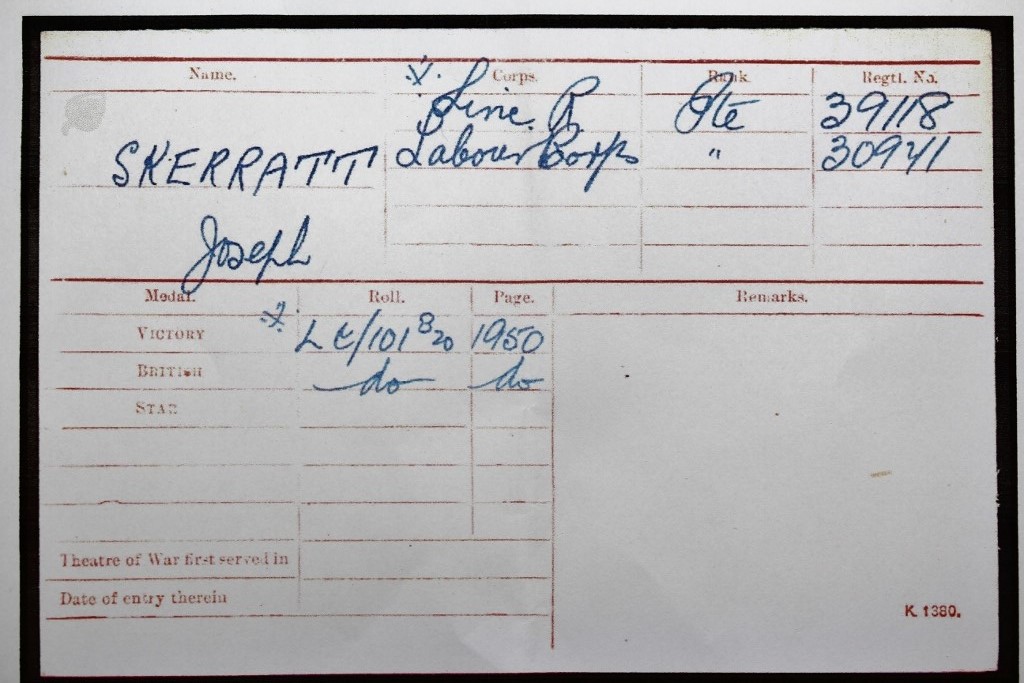 Name. Corps. Rank. Regtl. No.
Linc. R Pte 39118
Labour Corps " 30941
SKERRATT
Joseph
Medal. Roll. Page. Remarks.
VICTORY LC/101 B20 1950
BRITISH do do
STAR
Theatre of War first served in
Date of entry therein
K. 1380.